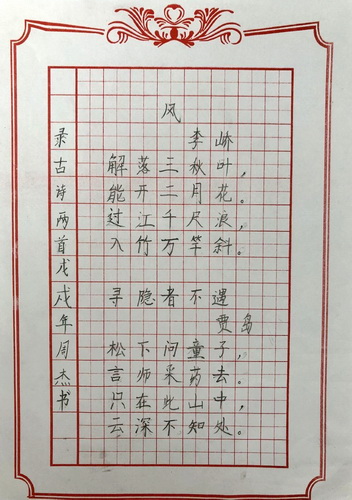 风
李峤
解落三秋叶，
能开二月花。
过江千尺浪，
入竹万竿斜。
寻隐者不遇
贾岛
松下问童子，
言师采药去。
只在此山中，
云深不知处。
录古诗两首戊戌年周杰书